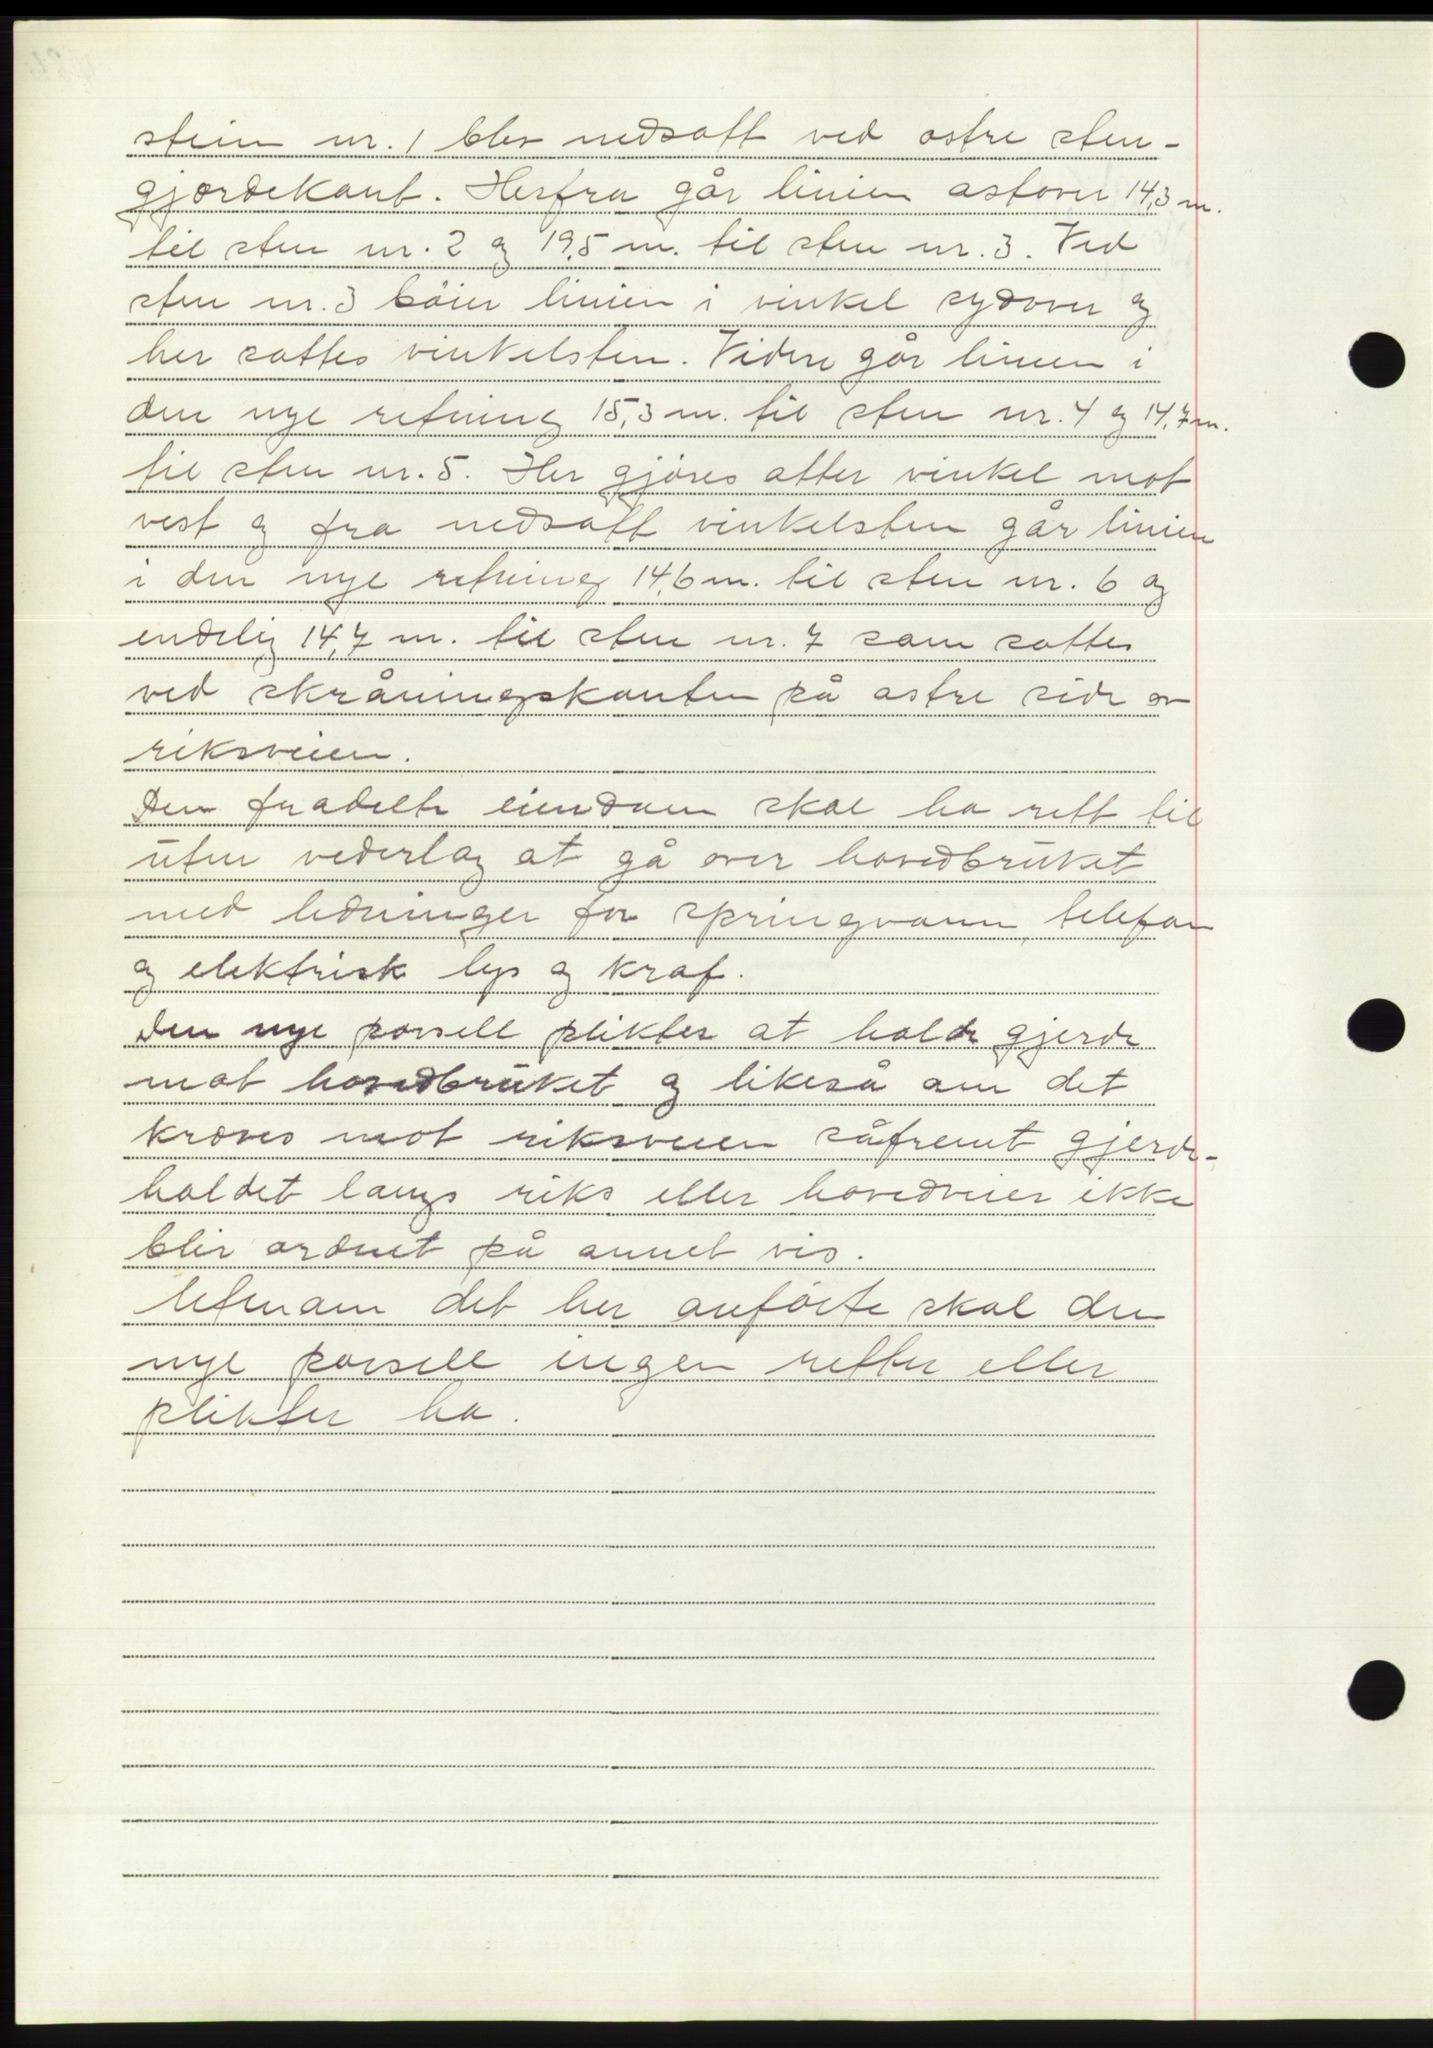 stein nr. 1 blev nedsatt ved østre sten-
gjærdekant. Herfra går linien østover 14,3 m.
til sten nr. 2 og 19,5 m. til sten nr. 3. Ved
sten nr. 3 böier linien i vinkel sydover og
her sattes vinkelsten. Videre går linien i
den nye retning 15,3 m. til sten nr. 4 og 14,7 m.
til sten nr. 5. Her gjöres atter vinkel mot
vest og fra nedsatt vinkelsten går linien
i den nye retning 14,6 m. til sten nr. 6 og
endelig 14,7 m. til sten nr. 7 som sattes
ved skråningskanten på østre side av
riksveien.
Den fradelte eiendom skal ha rett til
uten vederlag at gå over hovedbruket
med ledninger for springvann, telefon
og elektrisk lys og kraf.
Den nye parsell plikter at holde gjerde
mot hovedbruket og likeså om det
kræves mot riksveien såfremt gjerde-
holdet langs riks eller hovedveier ikke
blir ordnet på annet vis.
Utenom det her anförte skal den
nye parsell ingen retter eller
plikter ha.